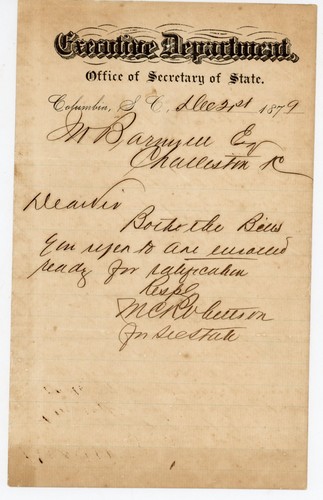 Executive Department,
Office of Secretary of State.
Columbia, S. C. Dec 21st 1879
W Barnwell Esq
Charleston SC
Dear Sir
Both the Bills
you refer to are enrolled
ready for ratification
Respy
M C Robertson
for Sec State